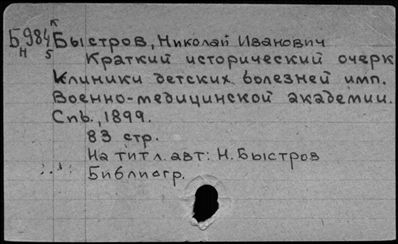 К
Б984 Быстров, Николай Иванович
Н 5 Краткий исторический очерк
клиники детских болезней имп.
Военно-медицинской академии.
Спб., 1899.
83 стр.
На титл. авт: Н. Быстров
Библиогр.